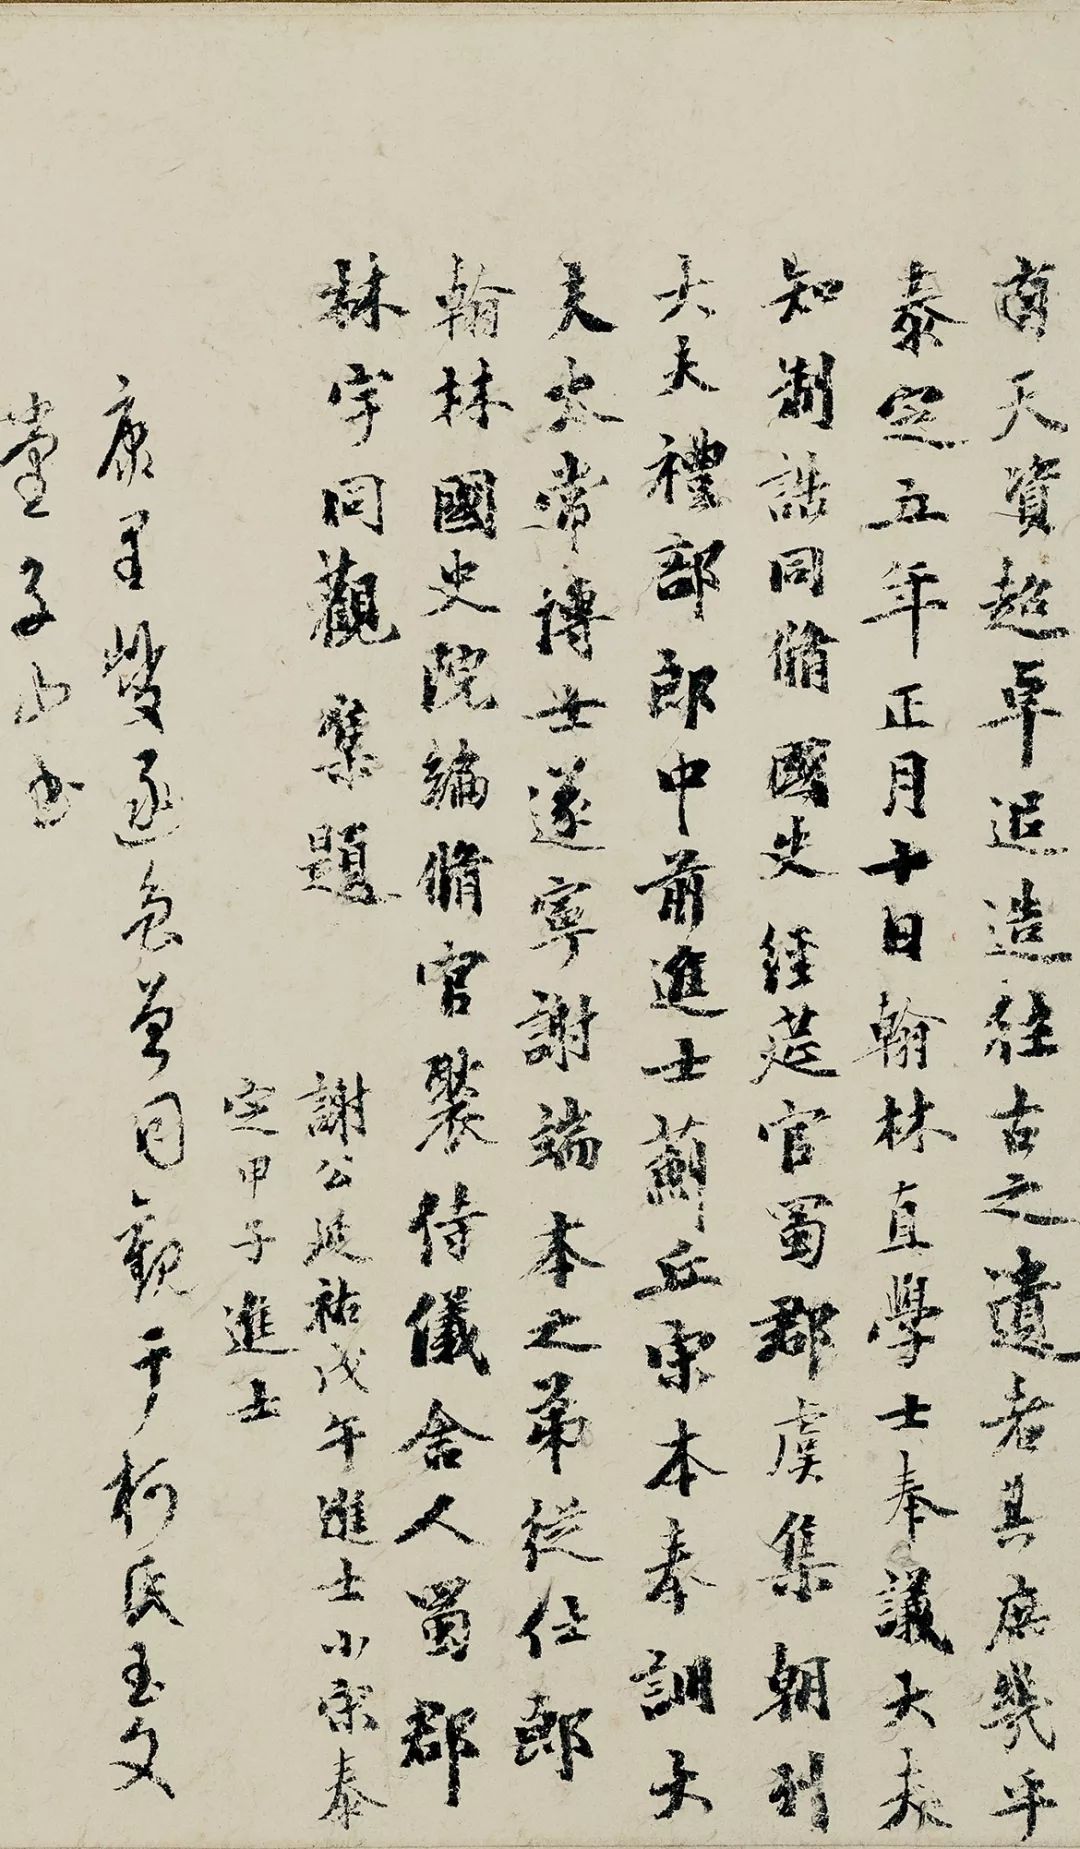 有天資超卓追造往古之遺者其庶幾乎
泰定五年正月十日翰林直學士奉議大夫
知制誥同脩國史經莚官蜀郡虞集朝列
大夫禮部郎中前進士薊丘宋本奉訓大
夫太常博士遂寧謝端本之弟從仕郎
翰林國史院編脩官褧侍儀舍人蜀郡
林宇同觀集題
謝公延祐戊午進士小宋泰
定甲子進士
康里巎
同觀于柯氏玉文
堂子山書